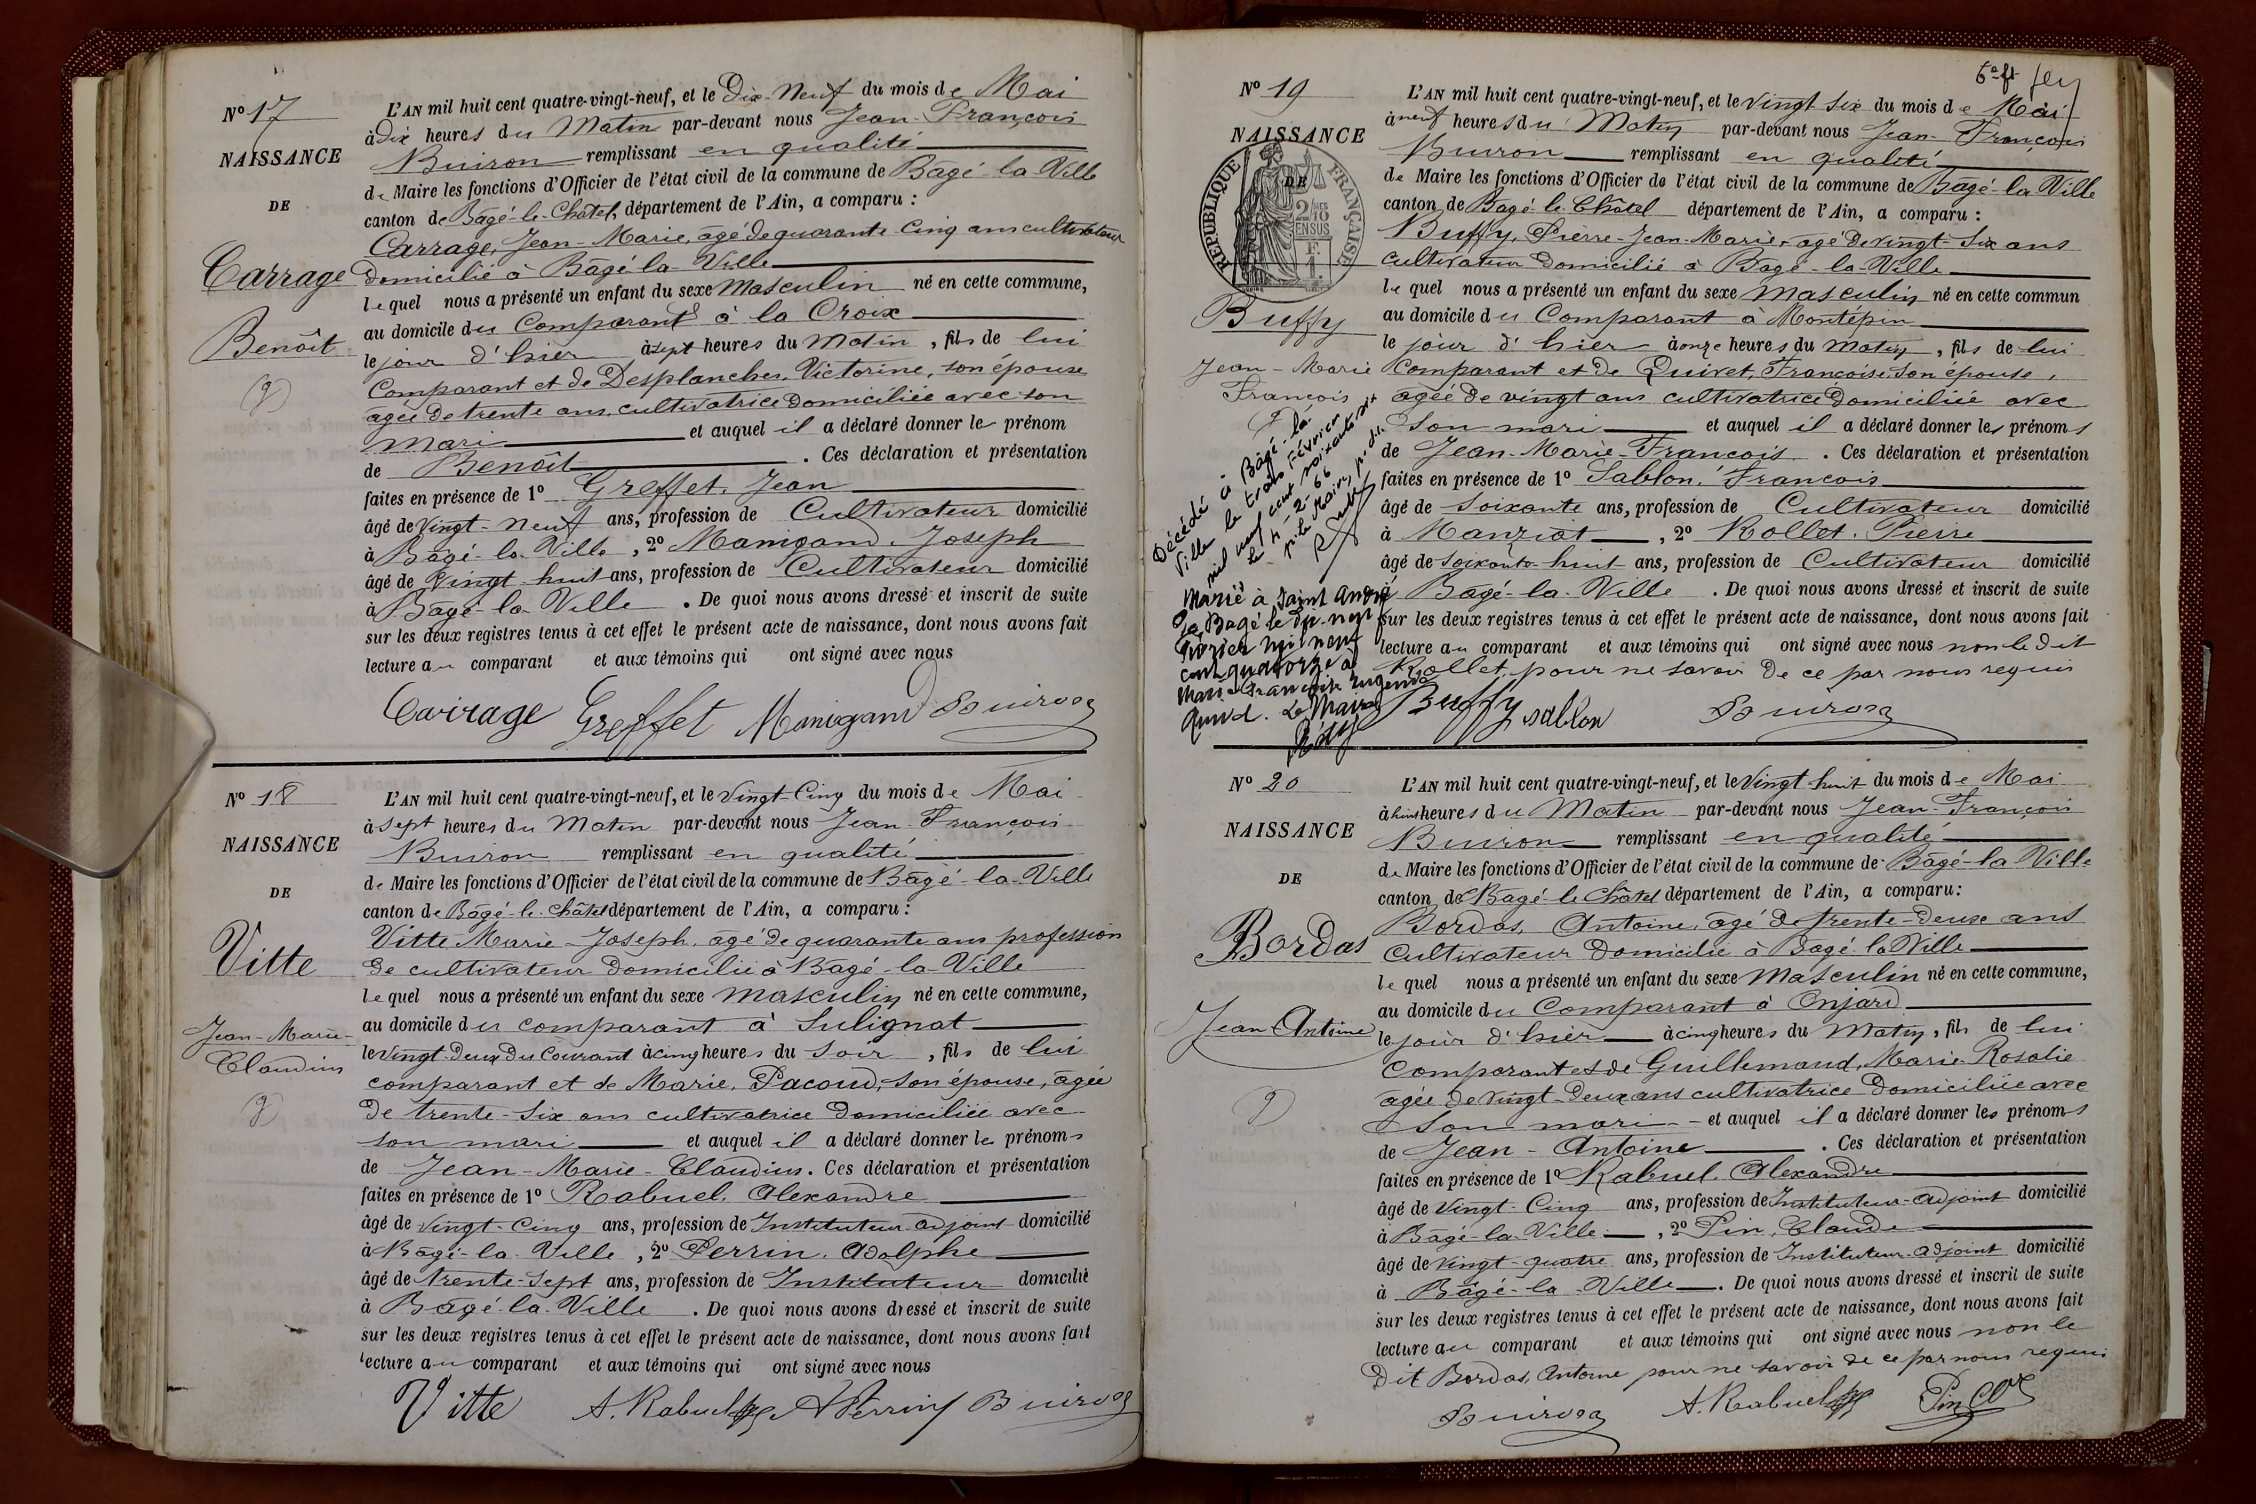 N° 17
NAISSANCE
DE
Carrage
Benoît
L'AN mil huit cent quatre-vingt-neuf, et le Dix-Neuf du mois de Mai
à Dix heures du Matin par-devant nous Jean-François
Buiron remplissant en qualité
de Maire les fonctions d'Officier de l'état civil de la commune de Bâgé-la-Ville
canton de Bâgé-le-Châtel, département de l'Ain, a comparu :
Carrage, Jean-Marie, âgé de quarante-cinq ans cultivateur
domicilié à Bâgé-la-Ville
lequel nous a présenté un enfant du sexe Masculin né en cette commune,
au domicile du Comparant à la Croix
le jour d'hier à sept heures du Matin, fils de lui
Comparant et de Desplanches, Victorine, son épouse
agée de trente ans, cultivatrice domiciliée avec son
mari et auquel il a déclaré donner le prénom
de Benoît. Ces déclaration et présentation
faites en présence de 1° Greffet, Jean
âgé de Vingt-neuf ans, profession de Cultivateur domicilié
à Bâgé-la-Ville, 2° Manigand, Joseph
âgé de Vingt-huit ans, profession de Cultivateur domicilié
à Bâgé-la-Ville. De quoi nous avons dressé et inscrit de suite
sur les deux registres tenus à cet effet le présent acte de naissance, dont nous avons fait
lecture au comparant et aux témoins qui ont signé avec nous
Carrage Greffet Manigand Buiron
N° 18
NAISSANCE
DE
Vitte
Jean-Marie-
Claudius
L'AN mil huit cent quatre-vingt-neuf, et le Vingt-Cinq du mois de Mai
à Sept heures du Matin par-devant nous Jean-François
Buiron remplissant en qualité
de Maire les fonctions d'Officier de l'état civil de la commune de Bâgé-la-Ville
canton de Bâgé-le-Châtel département de l'Ain, a comparu :
Vitte Marie-Joseph, agé de quarante ans profession
de cultivateur domicilié à Bâgé-la-Ville
lequel nous a présenté un enfant du sexe masculin né en cette commune,
au domicile du comparant à Sulignat
le vingt-deux du Courant à cinq heures du soir, fils de lui
comparant et de Marie, Pacoud, son épouse, agée
de trente-six ans cultivatrice domiciliée avec
son mari et auquel il a déclaré donner les prénoms
de Jean-Marie-Claudius. Ces déclaration et présentation
faites en présence de 1° Rabuel, Alexandre
âgé de vingt-cinq ans, profession de Instituteur-adjoint domicilié
à Bâgé-la-Ville, 2° Perrin, Adolphe
âgé de trente-sept ans, profession de Instituteur domicilié
à Bâgé-la-Ville. De quoi nous avons dressé et inscrit de suite
sur les deux registres tenus à cet effet le présent acte de naissance, dont nous avons fait
lecture au comparant et aux témoins qui ont signé avec nous
Vitte A. Rabuel A Perrin Buiron
N° 19
NAISSANCE
DE
RÉPUBLIQUE FRANÇAISE
Buffy
Jean-Marie
François
Décédé à Bâgé-la-
Ville le trois Février
mil neuf cent soixante six
le 4-2-66
Marié à Saint André
de Bagé le dix-neuf
février mil neuf
cent quatorze à
Le Maire
L'AN mil huit cent quatre-vingt-neuf, et le Vingt six du mois de Mai
à neuf heures du Matin par-devant nous Jean-François
Buiron remplissant en qualité
de Maire les fonctions d'Officier de l'état civil de la commune de Bâgé-la-Ville
canton de Bagé-le-Châtel département de l'Ain, a comparu :
Buffy, Pierre-Jean-Marie, agé de vingt-six ans
cultivateur domicilié à Bagé-la-Ville
lequel nous a présenté un enfant du sexe Masculin né en cette commun
au domicile du Comparant à Montépin
le jour d'hier à onze heures du matin, fils de lui
comparant et de Quivet, Françoise, son épouse,
agée de vingt ans cultivatrice domiciliée avec
son mari et auquel il a déclaré donner les prénoms
de Jean-Marie-François. Ces déclaration et présentation
faites en présence de 1° Sablon, François
âgé de soixante ans, profession de Cultivateur domicilié
à Manziat, 2° Rollet, Pierre
âgé de soixante-huit ans, profession de Cultivateur domicilié
à Bâgé-la-Ville. De quoi nous avons dressé et inscrit de suite
sur les deux registres tenus à cet effet le présent acte de naissance, dont nous avons fait
lecture au comparant et aux témoins qui ont signé avec nous non le dit
Rollet, pour ne savoir de ce par nous requis
Buffy sablon Buiron
N° 20
NAISSANCE
DE
Bordas
Jean-Antoine
L'AN mil huit cent quatre-vingt-neuf, et le Vingt-huit du mois de Mai
à huit heures du Matin par-devant nous Jean-François
Buiron remplissant en qualité
de Maire les fonctions d'Officier de l'état civil de la commune de Bâgé-la-Ville
canton de Bâgé-le-Châtel département de l'Ain, a comparu :
Bordas, Antoine, agé de trente-deux ans
cultivateur domicilié à Bagé-la-Ville
lequel nous a présenté un enfant du sexe Masculin né en cette commune,
au domicile du Comparant à Onjard
le jour d'hier à cinq heures du Matin, fils de lui
Comparant et de Guillemaud, Marie-Rosalie
agée de vingt-deux ans cultivatrice domiciliée avec
son mari et auquel il a déclaré donner les prénoms
de Jean-Antoine. Ces déclaration et présentation
faites en présence de 1° Rabuel, Alexandre
âgé de vingt-cinq ans, profession de Instituteur-adjoint domicilié
à Bâgé-la-Ville, 2° Pin, Claude
âgé de vingt-quatre ans, profession de Instituteur-adjoint domicilié
à Bâgé-la-Ville. De quoi nous avons dressé et inscrit de suite
sur les deux registres tenus à cet effet le présent acte de naissance, dont nous avons fait
lecture au comparant et aux témoins qui ont signé avec nous non le
Dit Bordas, Antoine pour ne savoir de ce par nous requis
Buiron A. Rabuel Pin Cl